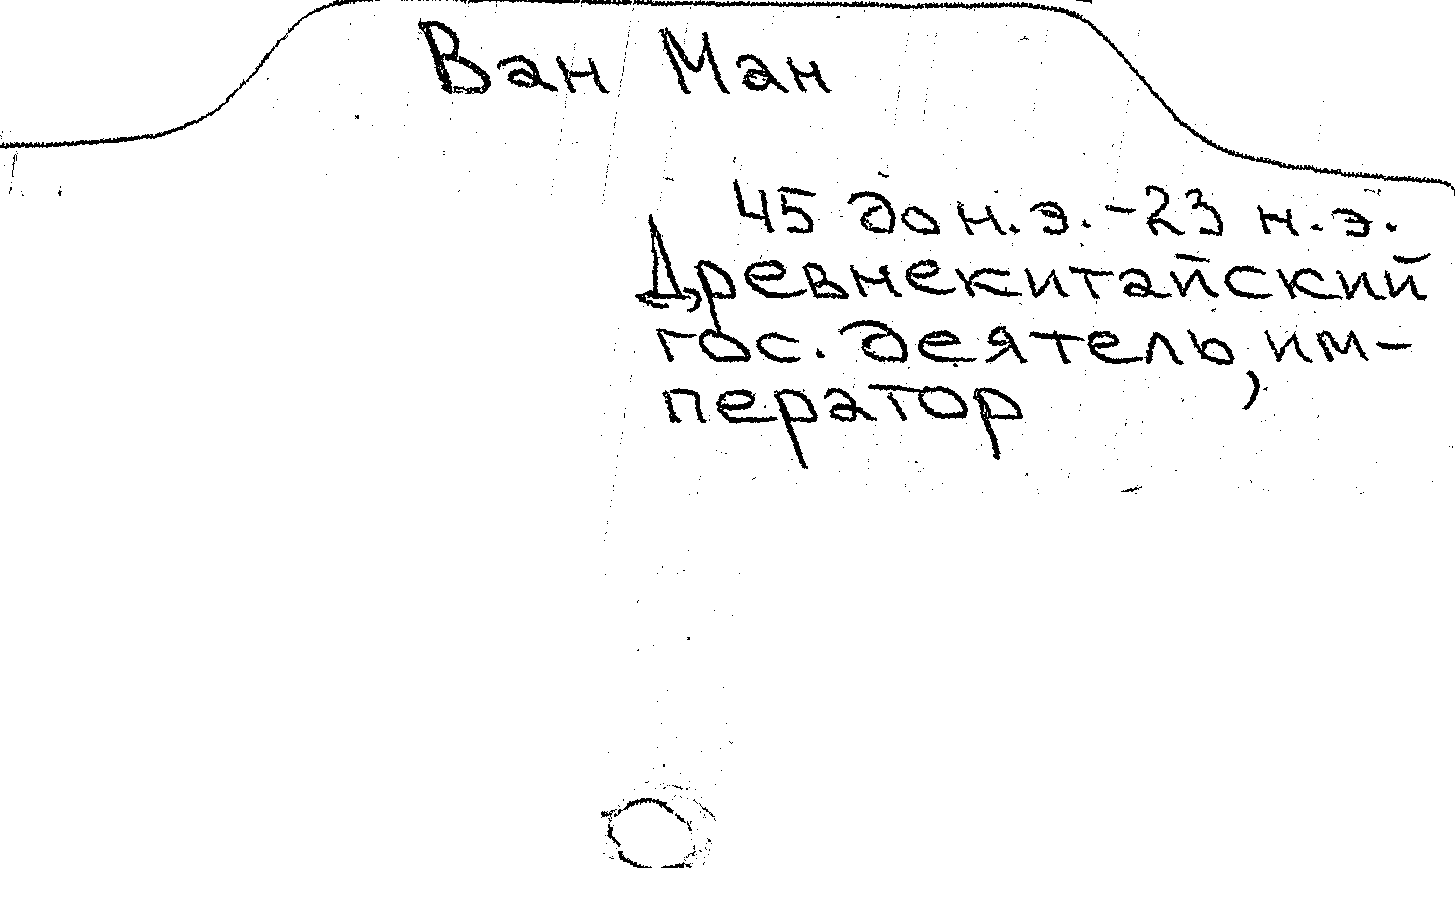 Ван Ман
45 до н.э.-23 н.э.
Древнекитайский
гос. деятель, им-
ператор